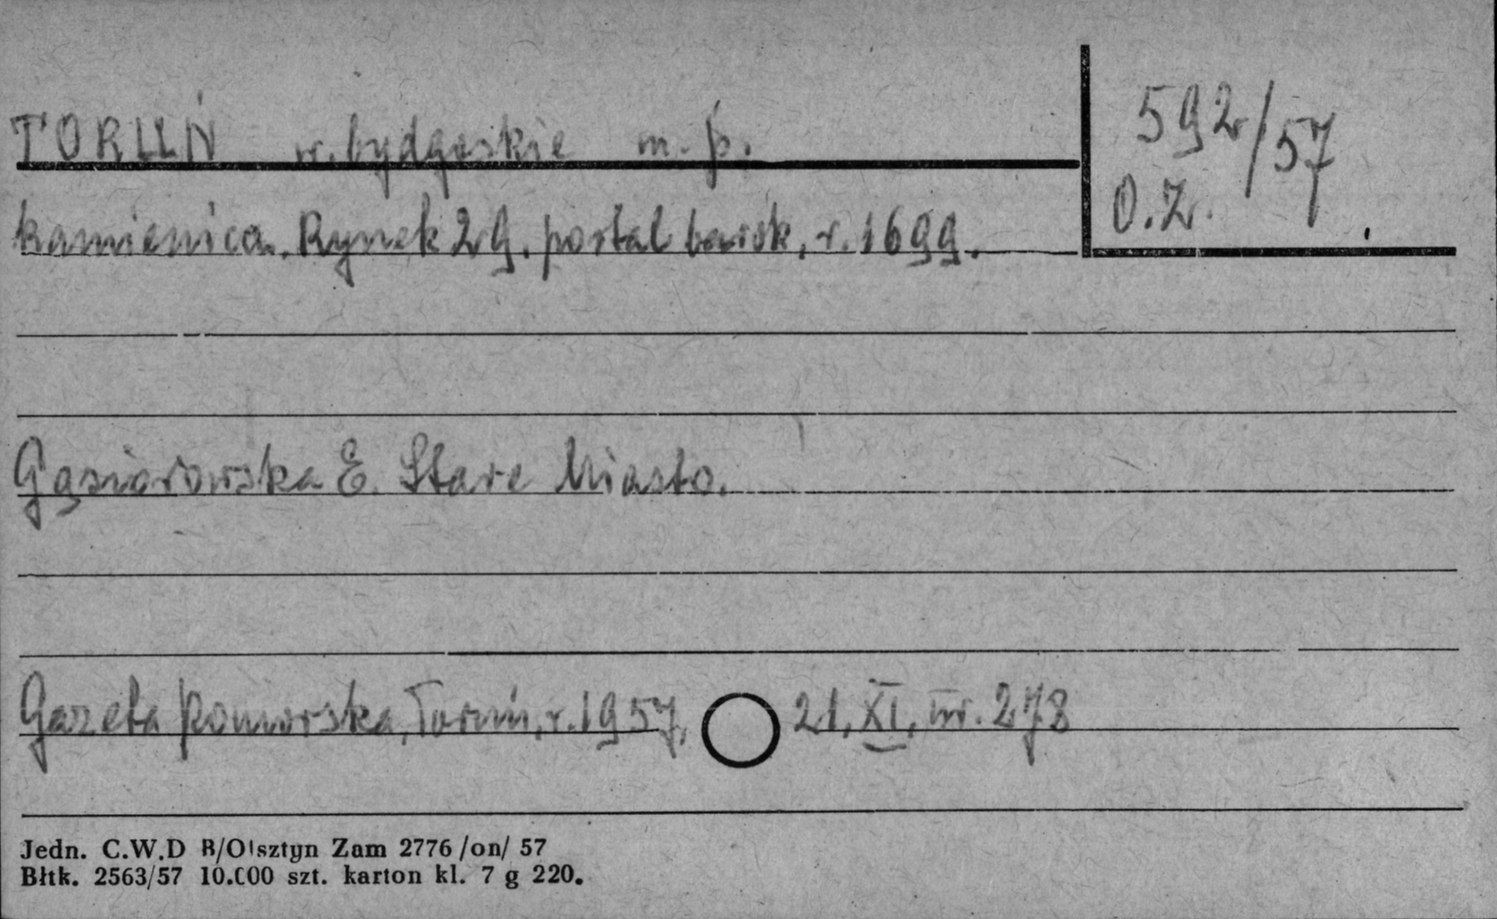 TORUŃ w. bydgoskie m. p.
592/57
O.Z.
kamienica. Rynek 29. portal barok, r. 1699.
Gąsiorowska E. Stare Miasto.
Gazeta Pomorska, Toruń, r. 1957, 21. XI, nr. 278
Jedn. C.W.D B/Olsztyn Zam 2776 /on/ 57
Błtk. 2563/57 10.000 szt. karton kl. 7 g 220.